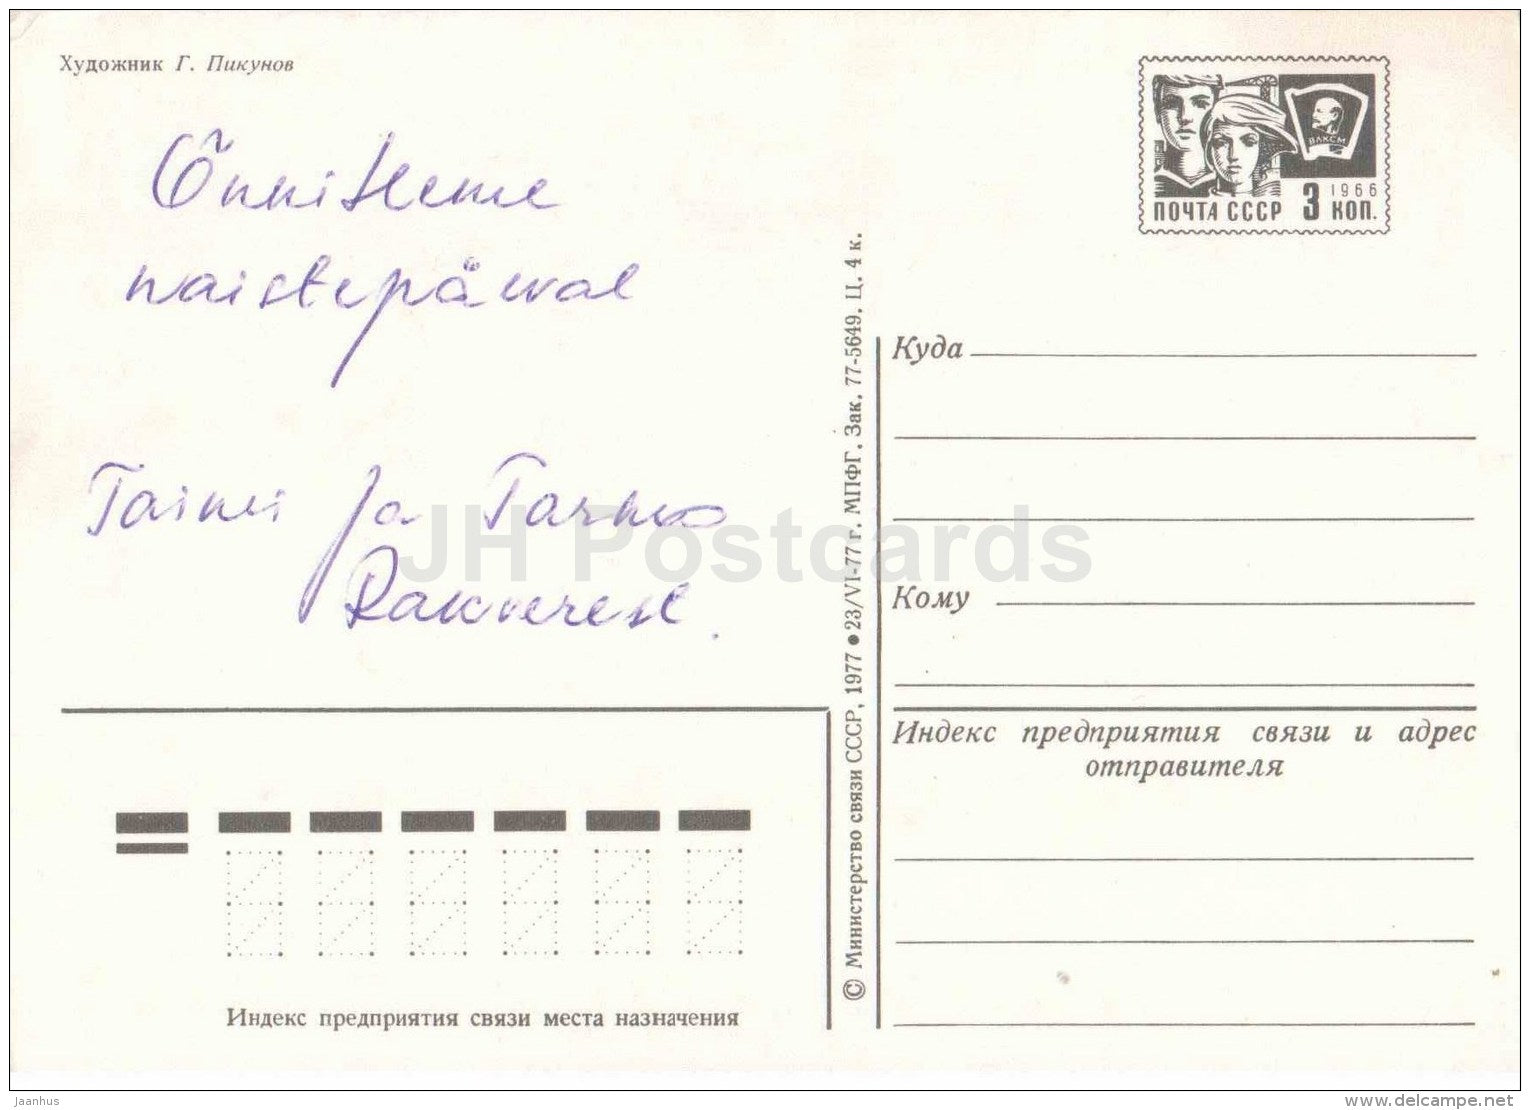 Художник Г. Пикунов
Õnnitleme
naistepäeval
Taimi ja Tarmo
Rakverest.
ПОЧТА СССР 3 КОП.
1966
ВЛКСМ
Куда
Кому
Индекс предприятия связи и адрес
отправителя
Индекс предприятия связи места назначения
© Министерство связи СССР, 1977 ● 23/VI-77 г. МПФГ. Зак. 77-5649. Ц. 4 к.
JH Postcards
Jaanhus
delcampe.net